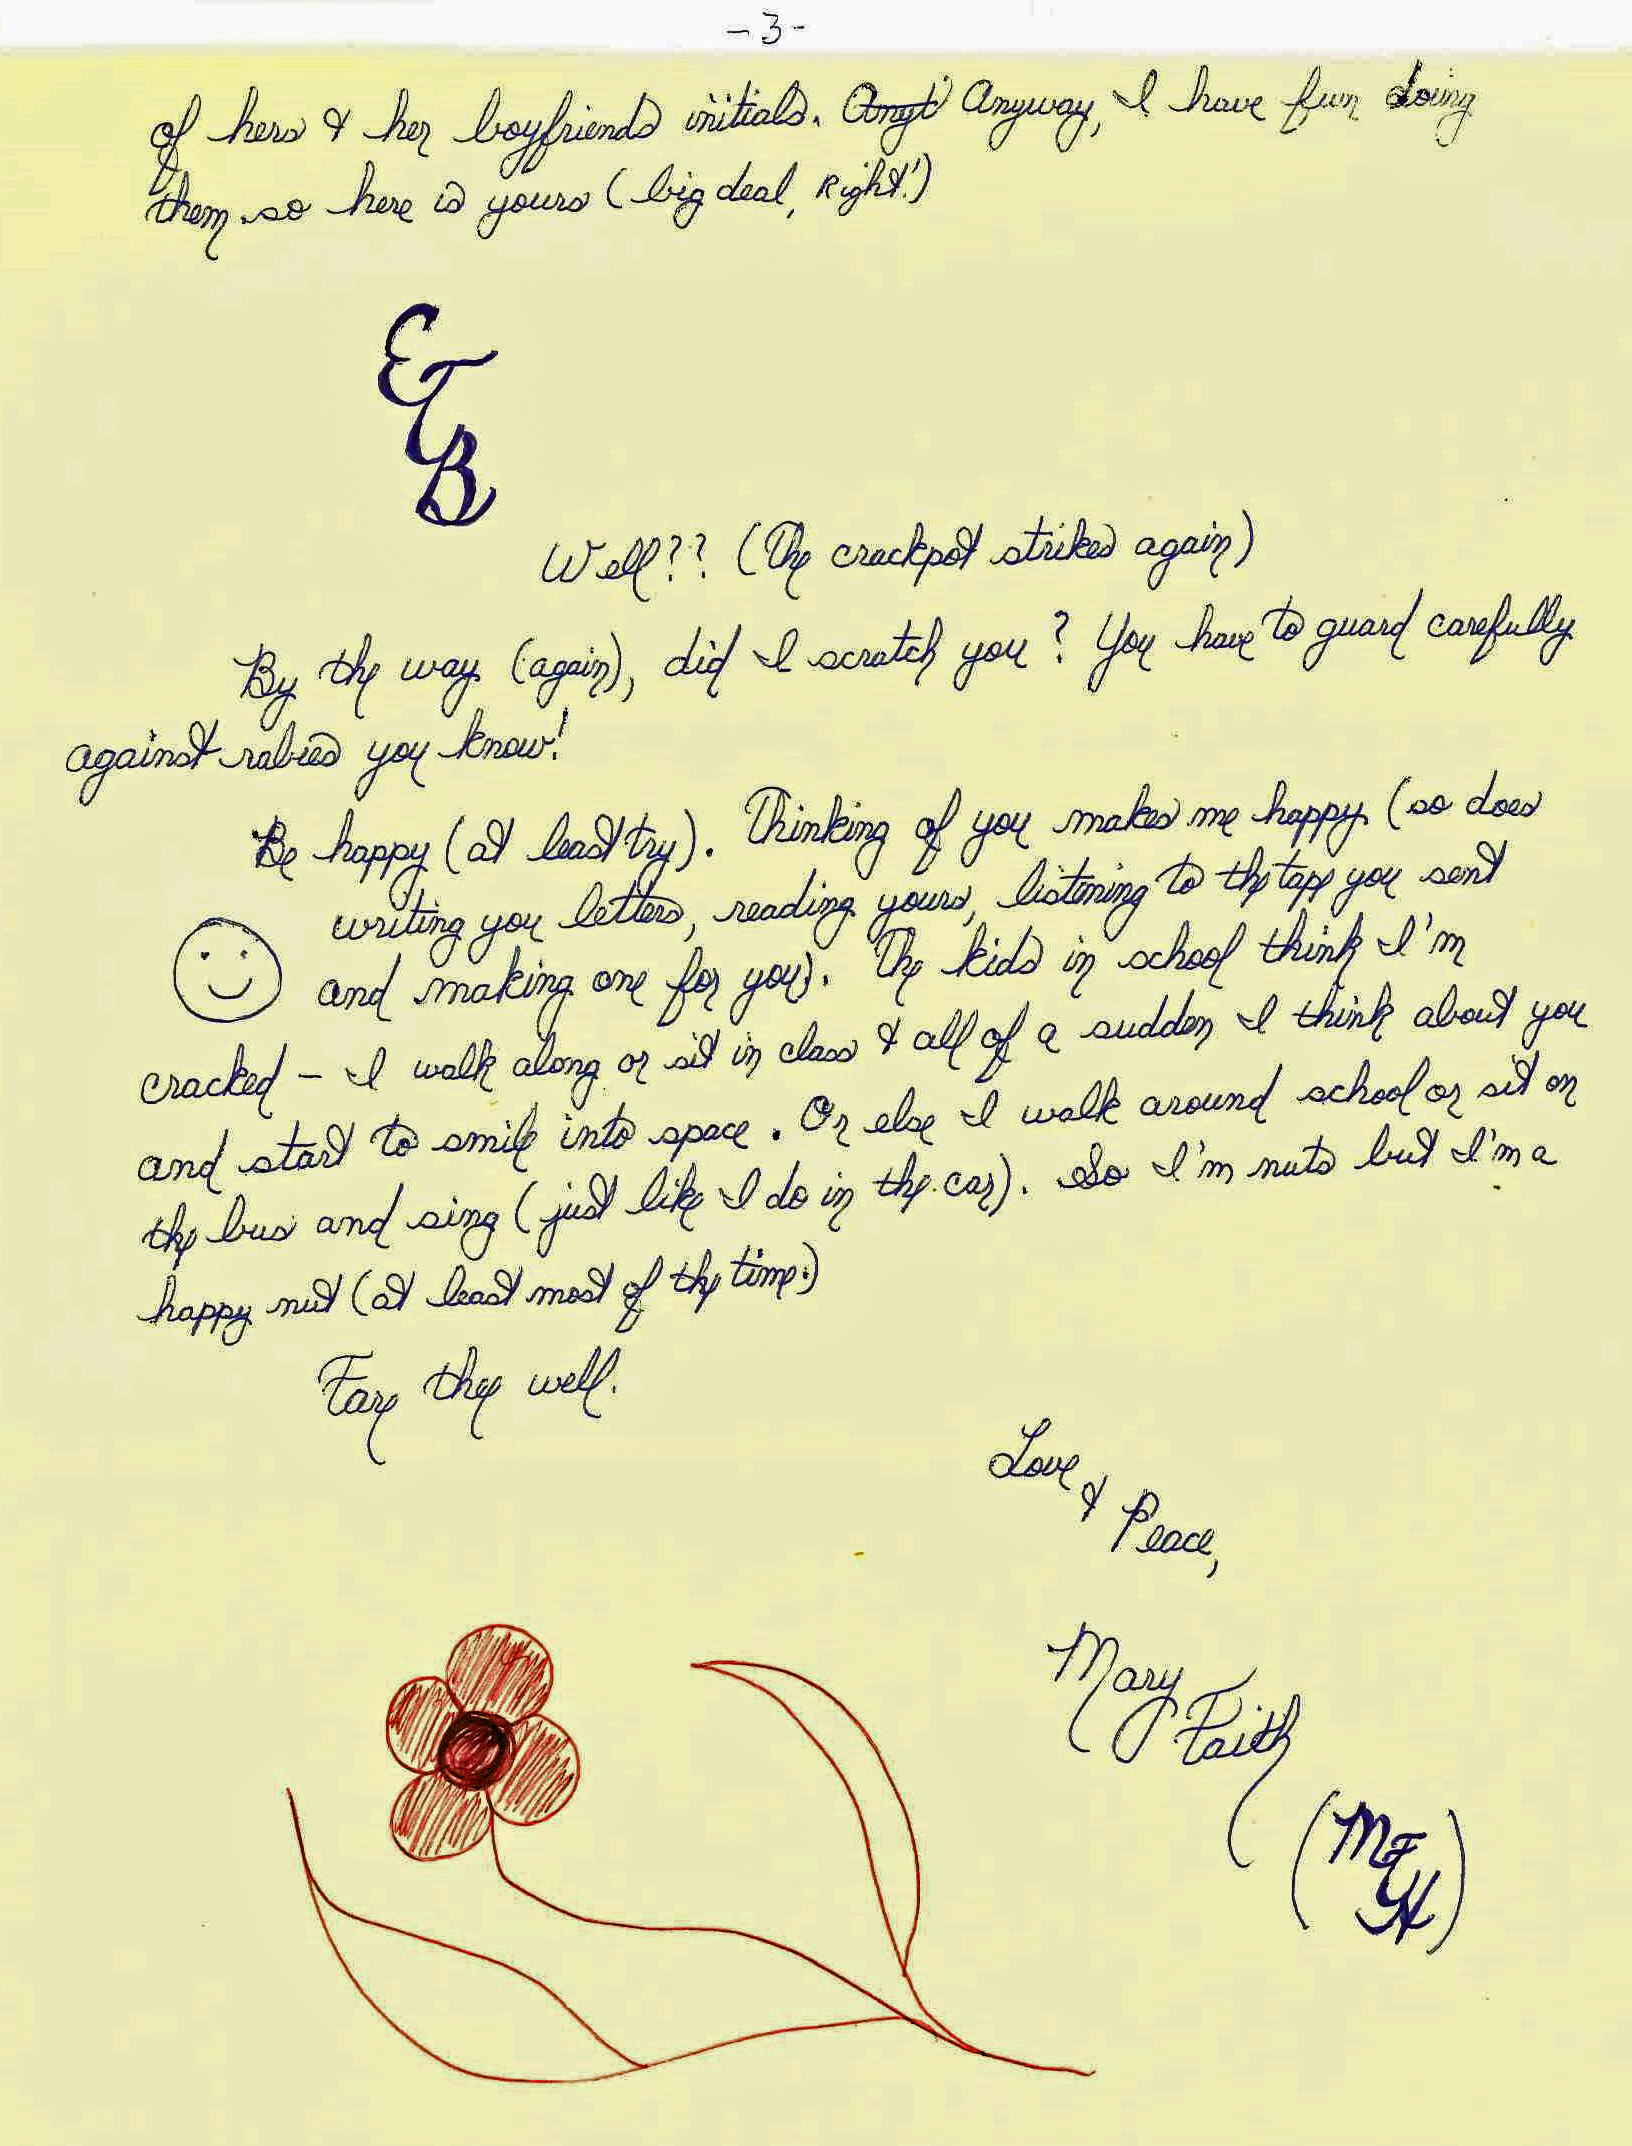 -3-
of hers & her boyfriends initials. Anyt Anyway, I have fun doing
them so here is yours (big deal, Right!)
E
T
B
Well?? (The crackpot strikes again)
By the way (again), did I scratch you? You have to guard carefully
against rabies you know!
Be happy (at least try). Thinking of you makes me happy (so does
writing you letters, reading yours, listening to the tape you sent
and making one for you). The kids in school think I'm
cracked - I walk along or sit in class & all of a sudden I think about you
and start to smile into space. Or else I walk around school or sit on
the bus and sing (just like I do in the car). So I'm nuts but I'm a
happy nut (at least most of the time.)
Fare thee well.
Love
&
Peace,
Mary
Faith
(MFH)